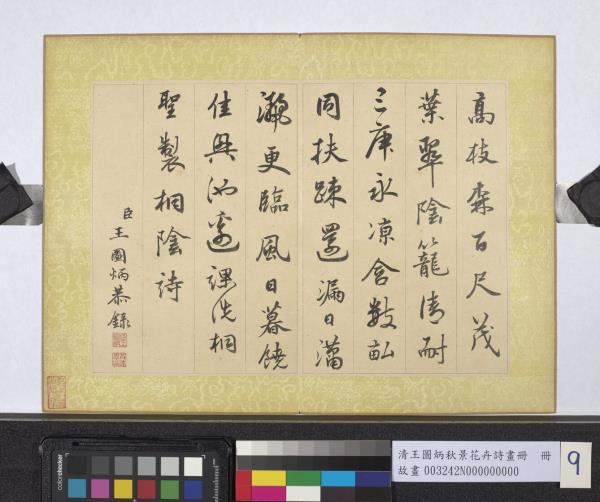 高枝森百尺茂
葉翠陰籠清耐
三庚永涼含數畝
同扶踈還漏日瀟
灑更臨風日暮饒
佳興池邊課洗桐
聖製桐陰詩
臣王圖炳恭錄
清王圖炳秋景花卉詩畫冊 冊
故畫 003242N000000000
9
colorchecker